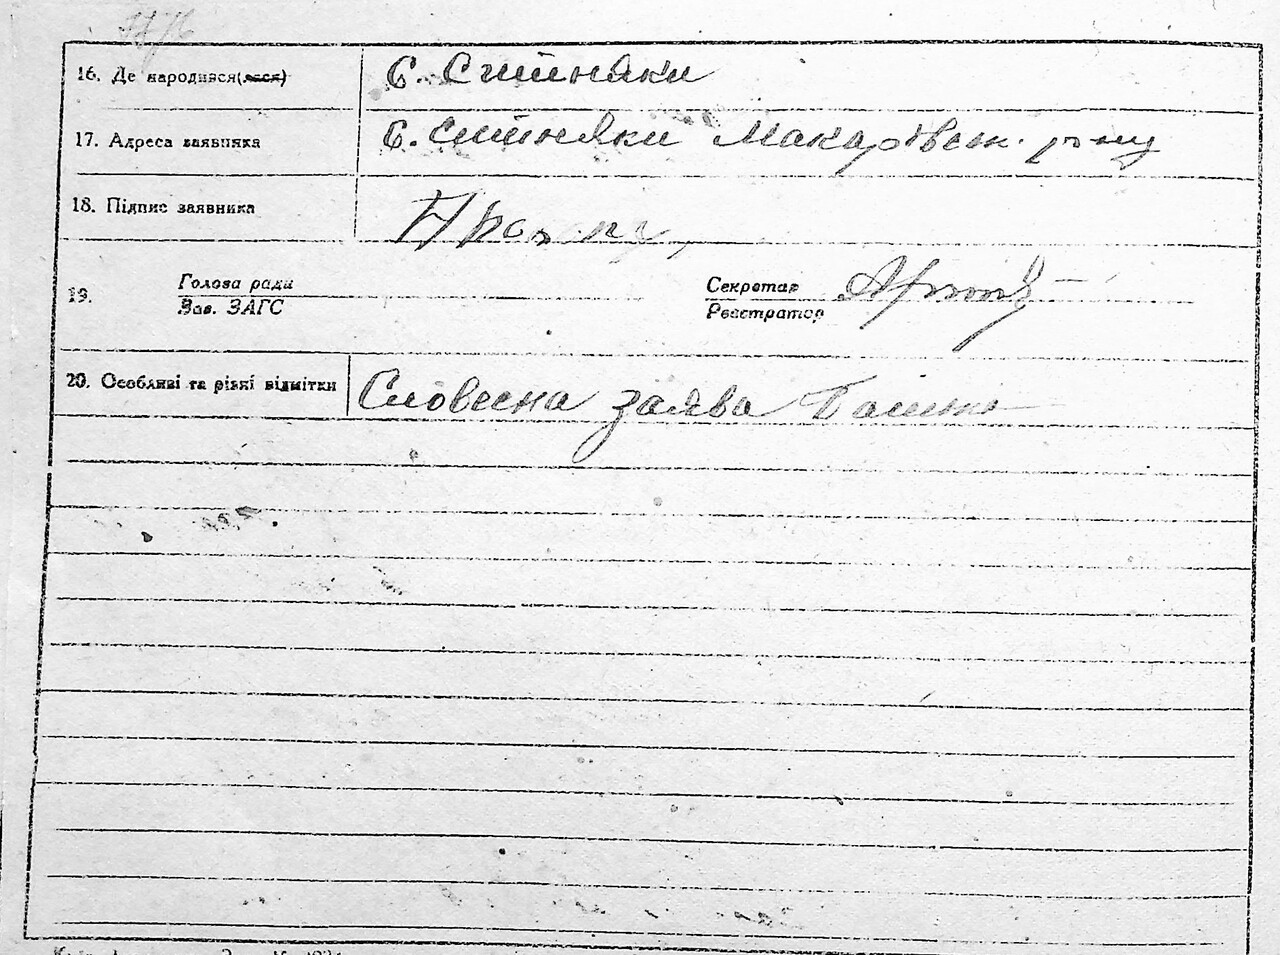 16. Де народився(лася) с. Ситняки
17. Адреса заявника с. Ситняки Макарівськ. р-ну
18. Підпис заявника
19. Голова ради
Зав. ЗАГС
Секретар
Реєстратор
20. Особливі та різкі відмітки Словесна заява Батька